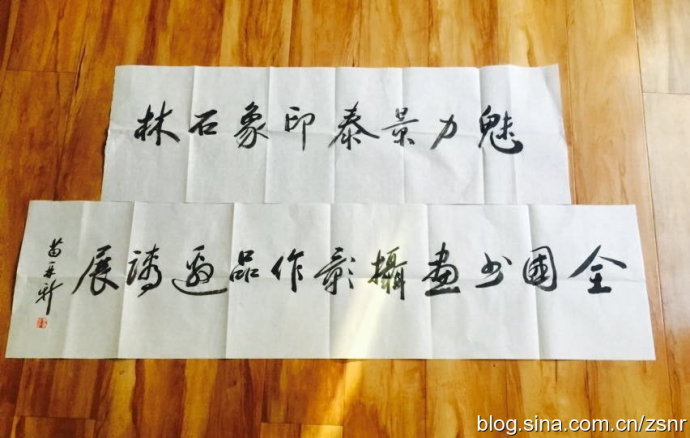 魅力景泰印象石林
全國书畫攝影作品邀請展
苗再新
blog.sina.com.cn/zsnr